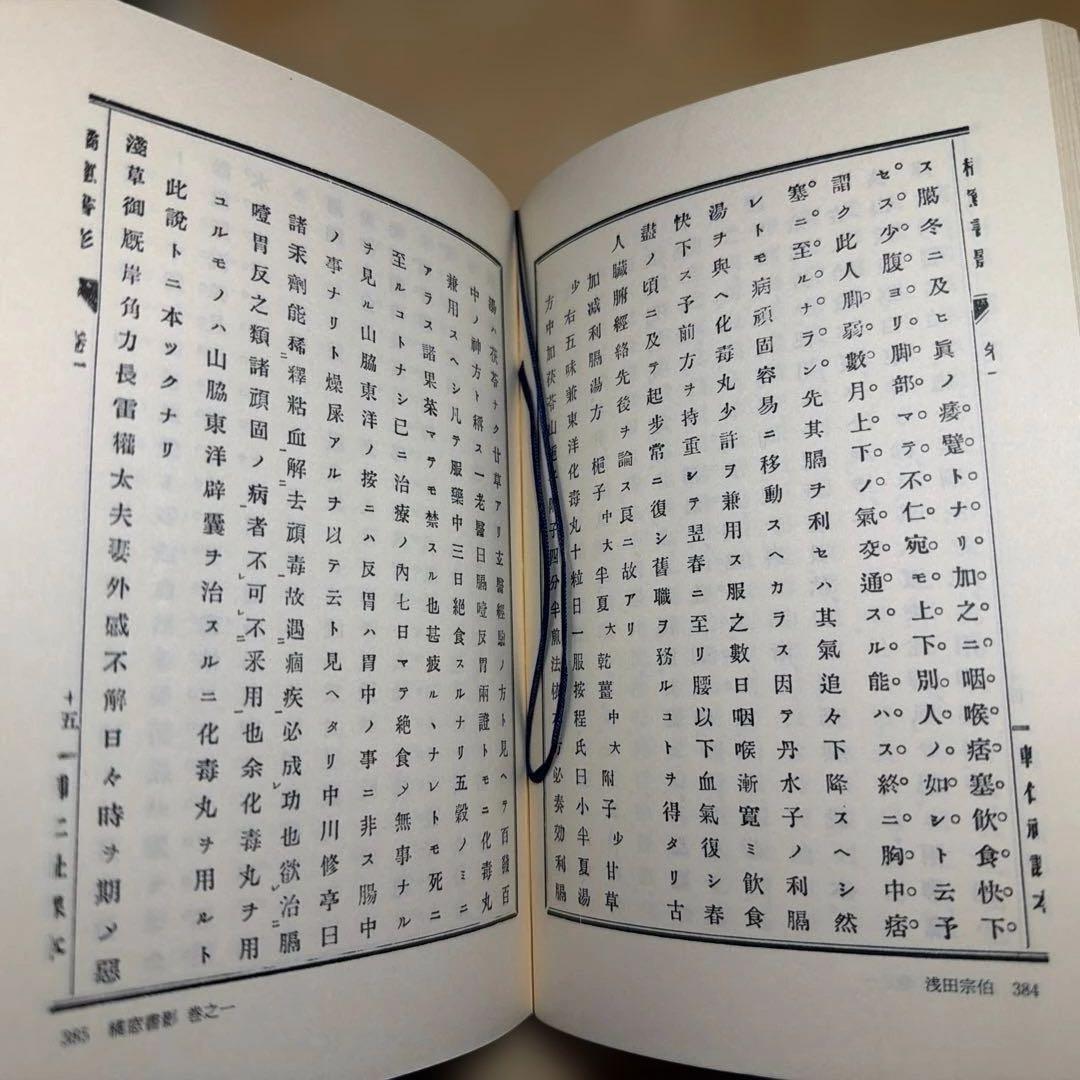 ス臈冬ニ及ヒ眞ノ痿躄トナリ加之ニ咽喉痞塞飲食快下
セス少腹ヨリ脚部マテ不仁宛モ上下別人ノ如シト云予
謂ク此人脚弱數月上下ノ氣交通スル能ハス終ニ胸中痞
塞ニ至ルナラン先其膈ヲ利セハ其氣追々下降スヘシ然
レトモ病頑固容易ニ移動スヘカラス因テ丹水子ノ利膈
湯ヲ與ヘ化毒丸少許ヲ兼用ス服之數日咽喉漸寛ミ飲食
快下ス予前方ヲ持重シテ翌春ニ至リ腰以下血氣復シ春
盡ノ頃ニ及テ起步常ニ復シ舊職ヲ務ルコトヲ得タリ古
人臓腑經絡先後ヲ論ス良ニ故アリ
加減利膈湯方 梔子中大半夏大乾薑中大附子少甘草
少右五味兼東洋化毒丸十粒日一服按程氏曰小半夏湯
方中加茯苓山梔子附子四分半煎法依方必奏効利膈
湯ハ茯苓ナク甘草アリ玄醫經驗ノ方ト見ヘテ百發百
中ノ神方ト稱ス一老醫曰膈噎反胃兩證トモニ化毒丸
兼用スヘシ凡テ服藥中三日絶食スルナリ五穀ノミニ
アラス諸果菜マテモ禁スル也甚疲ルヽナレトモ死ニ
至ルコトナシ已ニ治療ノ內七日マテ絶食〆無事ナル
ヲ見ル山脇東洋ノ按ニハ反胃ハ胃中ノ事ニ非ス腸中
ノ事ナリト燥屎アルヲ以テ云ト見ヘタリ中川修亭曰
諸汞劑能稀釋粘血解去頑毒故遇痼疾必成功也欲治膈
噎胃反之類諸頑固ノ病者不可不釆用也余化毒丸ヲ用
ユルモノハ山脇東洋辟囊ヲ治スルニ化毒丸ヲ用ルト
此說トニ本ックナリ
淺草御厩岸角力長雷權太夫妻外感不解日々時ヲ期〆惡
浅田宗伯 384
385 橘窓書影 巻之一
十五
卷一